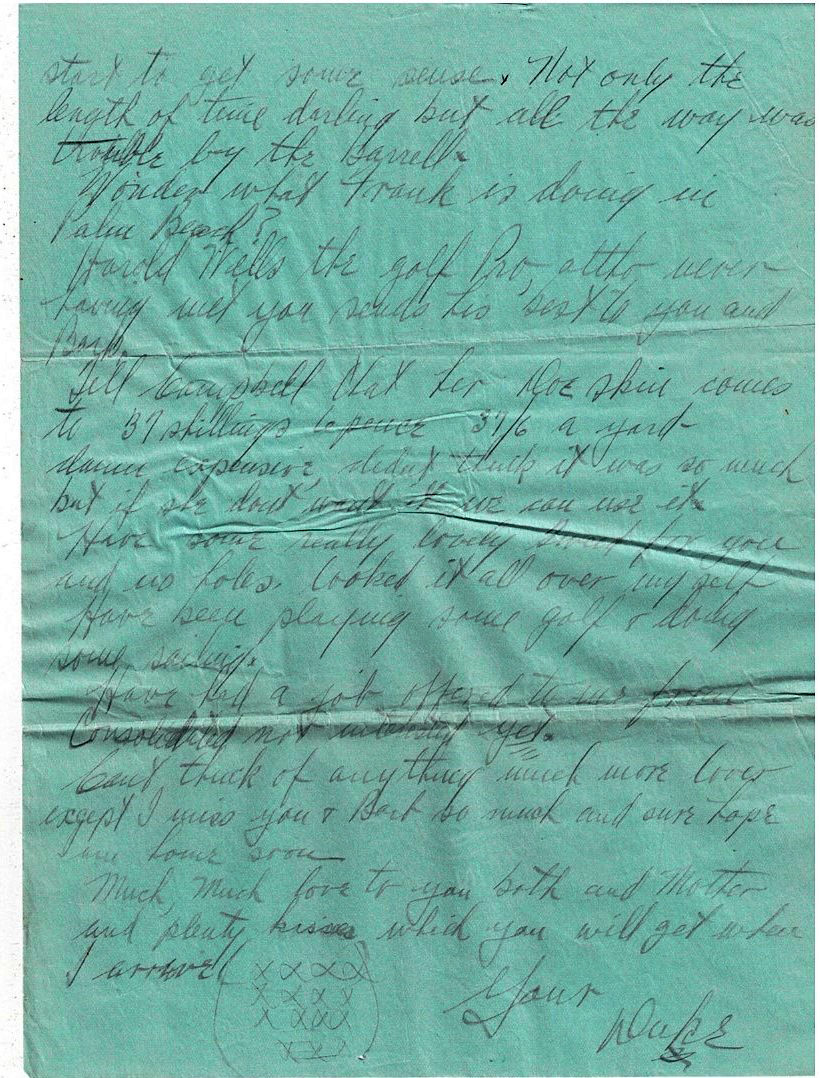 start to get some sense. Not only the
length of time darling but all the way was
trouble by the barrell.
Wonder what Frank is doing in
Palm Beach?
Harold Wells the golf Pro, altho never
having met you sends his best to you and
Barb.
Tell Campbell that her Doe skin comes
to 37 shillings 6 pence 37/6 a yard
damn expensive, didnt think it was so much
but if she dont want it we can use it.
Have some really lovely for you
and no holes. looked it all over my self
Have been playing some golf & doing
some sailing.
Have had a job offered to me from
Consolidated not yet.
Cant think of anything much more lover
except I miss you & Barb so much and sure hope
am home soon
Much, Much love to you both and Mother
and plenty kisses which you will get when
I arrive (XXXX
XXXX
XXXX
XX)
Your
Duke